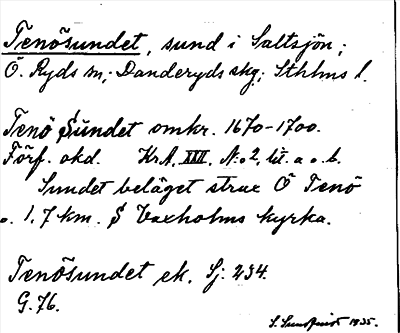 Tenösundet, sund i Saltsjön;
Ö. Ryds sn; Danderyds skg; Sthlms l.
Tenö Sundet omkr. 1670-1700.
Förf. okd. KrA, XIII, N:o 2, lit. a o. b.
Sundet beläget strax Ö Tenö
o. 1,7 km. S Vaxholms kyrka.
Tenösundet ek. Sj: 234.
G. 76.
S. Sundqvist 1935.